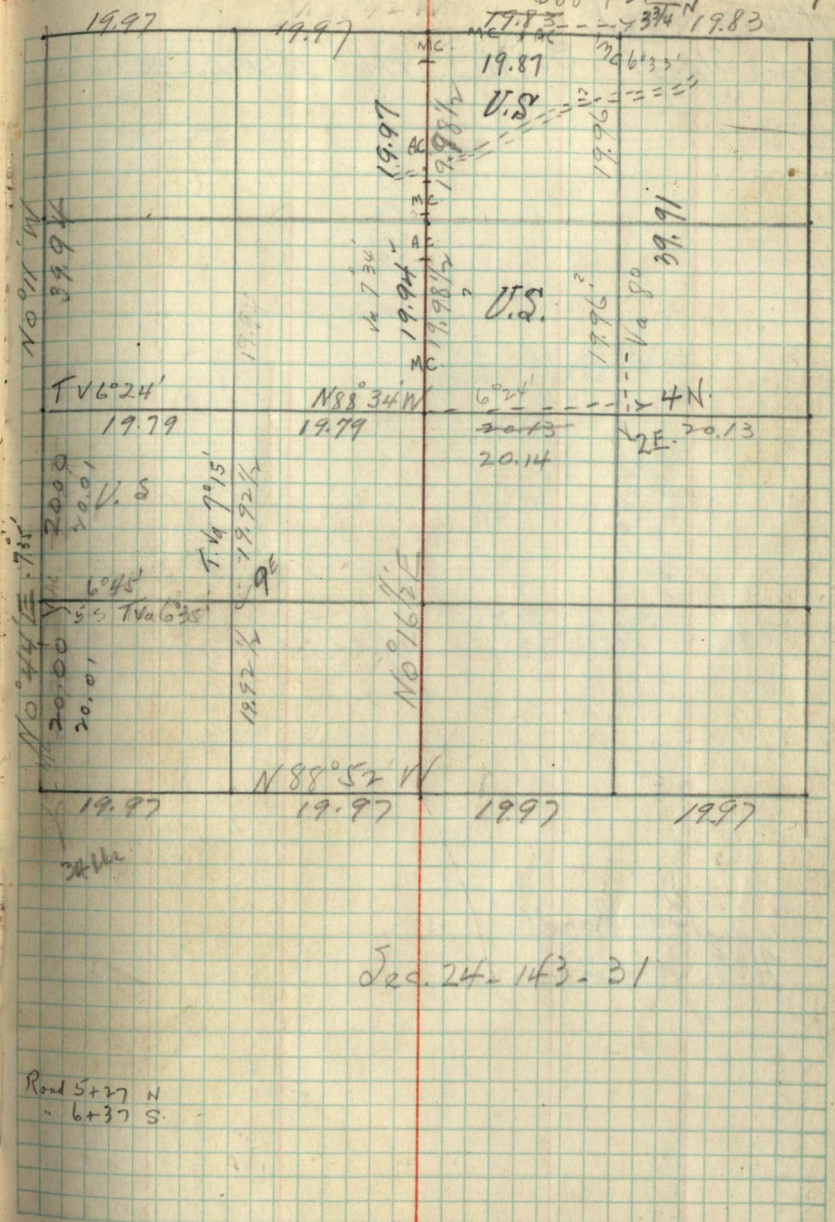 19.97 19.97 19.83 3 3/4 N 19.83
MC AC
MC
19.87
6°33'
U.S
19.97
19.98 1/2
19.96
AC
39.91
A
Va 7°34'
19.94
19.98 1/2
U.S.
19.96 ?
Va 8°
MC
N 0°11' W
TV 6°24' N 88°34' W 6°24' 4 N.
19.79 19.79 20.13 2E. 20.13
20.14
20.00
20.01
U.S
T. Va 7°15'
19.92 1/2
9E
6°45'
T Va 6°35'
N 0°44' E
20.00
20.01
19.92 1/2
N 0°16 1/2' E
N 88°52' W
19.97 19.97 19.97 19.97
Sec. 24-143-31
Road 5+27 N
" 6+37 S.